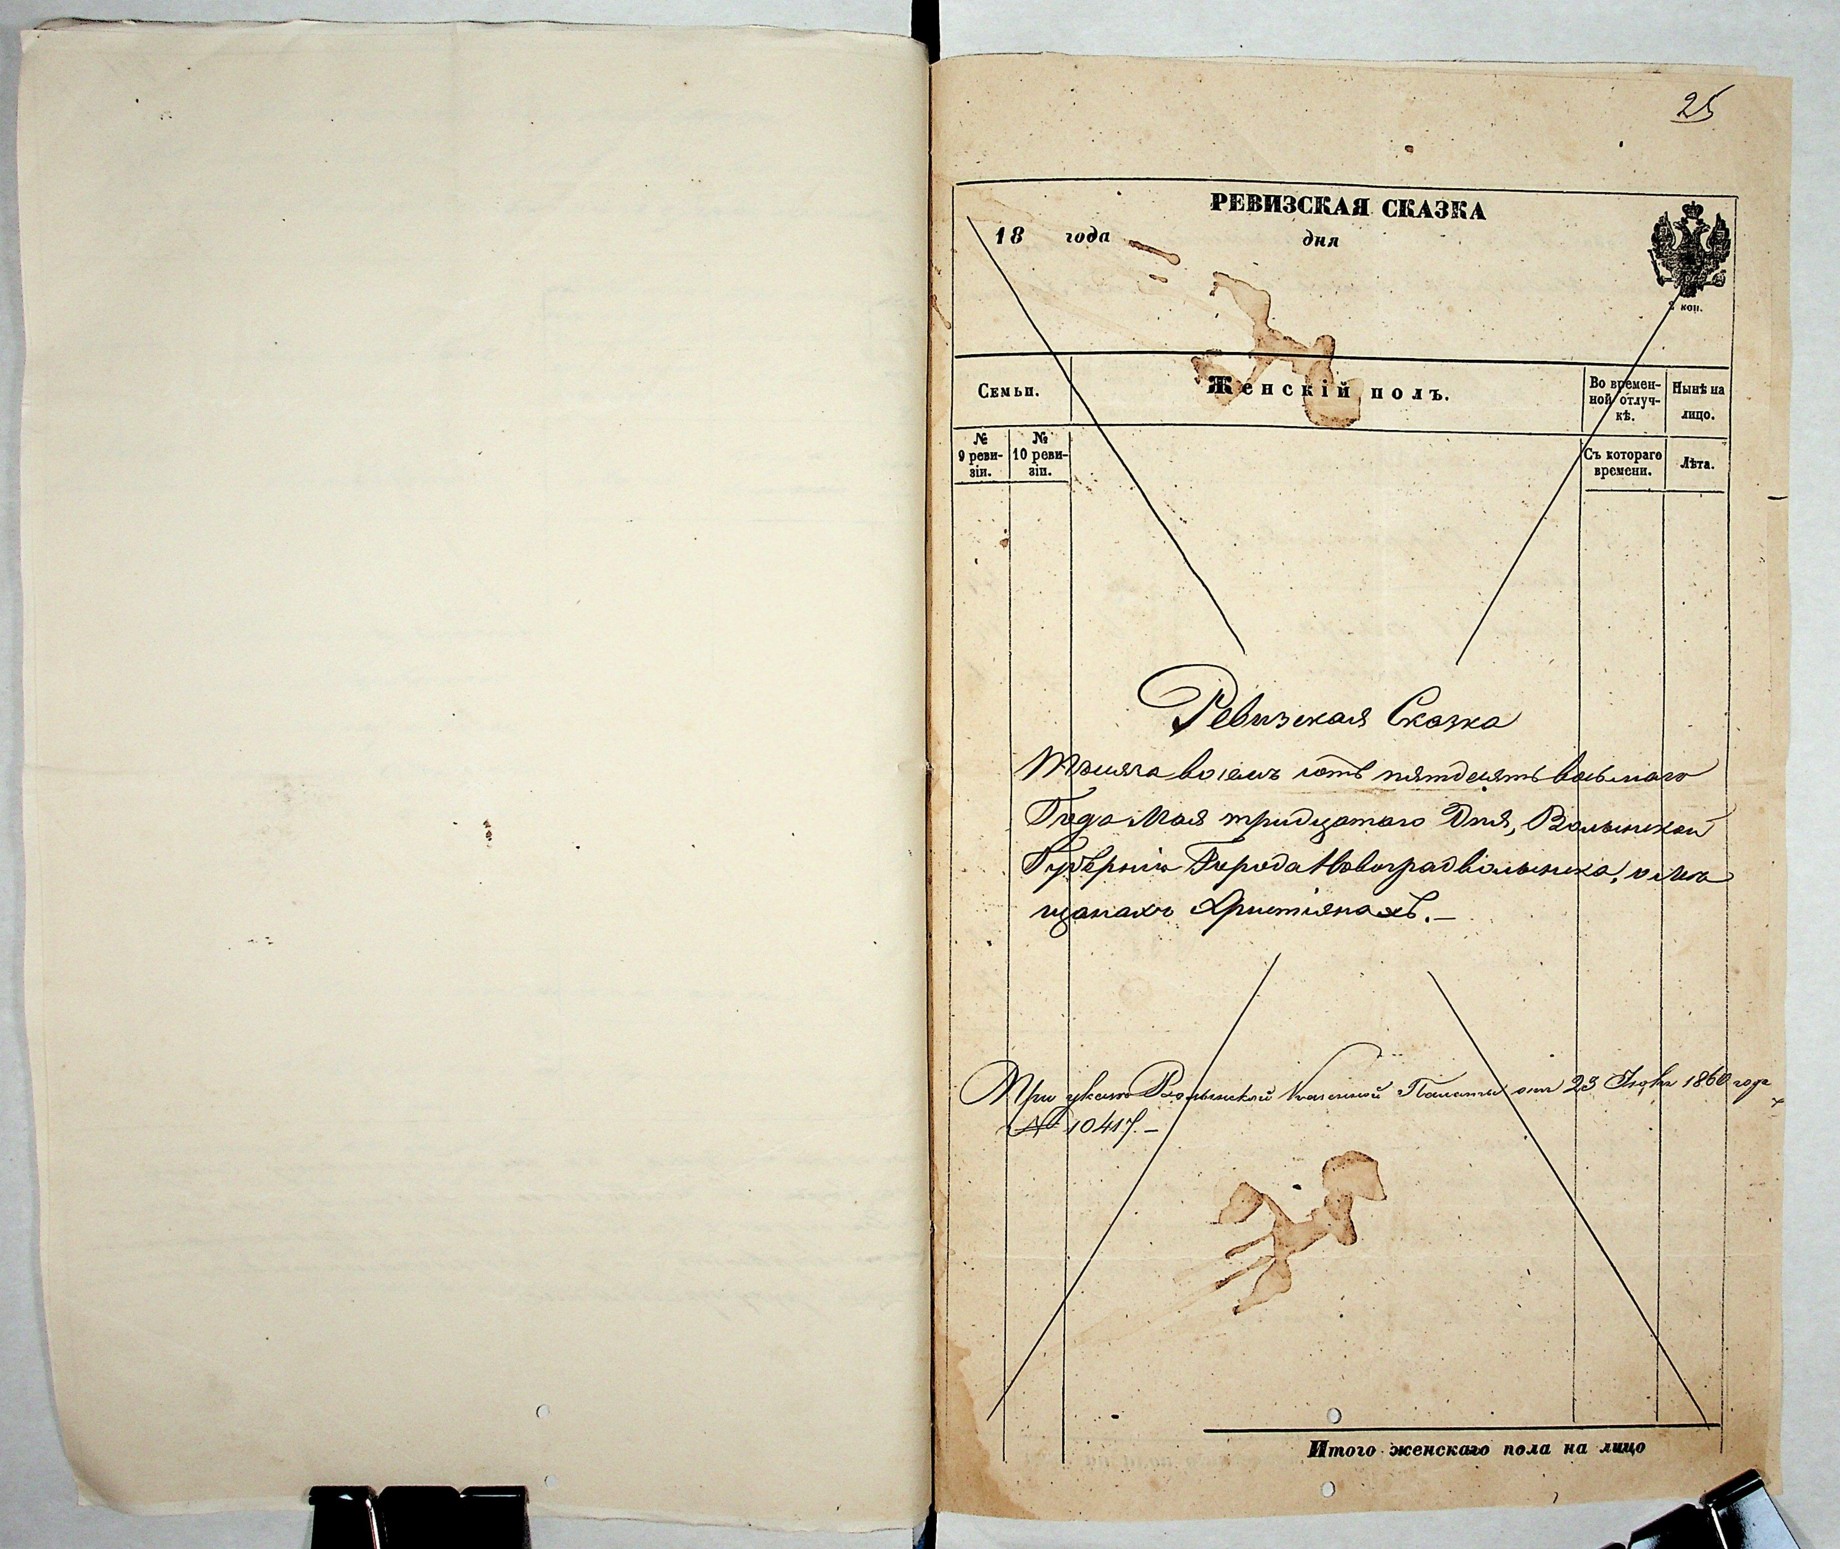 25
РЕВИЗСКАЯ СКАЗКА
18 года дня
2 коп.
Семьи. Женскій полъ. Во времен-ной отлуч-кѣ. Нынѣ на лицо.
№ 9 реви-зіи. № 10 реви-зіи. Съ котораго времени. Лѣта.
Ревизская Сказка
Тысяча восемь сотъ пятдесятъ восьмаго
Года Мая тридцатаго Дня, Волынской
Губерніи Города Новоградволынска, о мѣ
щанахъ Христіянахъ.—
При указѣ Волынской Казенной Палаты отъ 23 1860 года
№ 10417.—
Итого женскаго пола на лицо